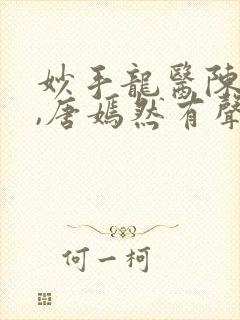 妙手龍醫陳
,唐嫣然有聲
何一柯